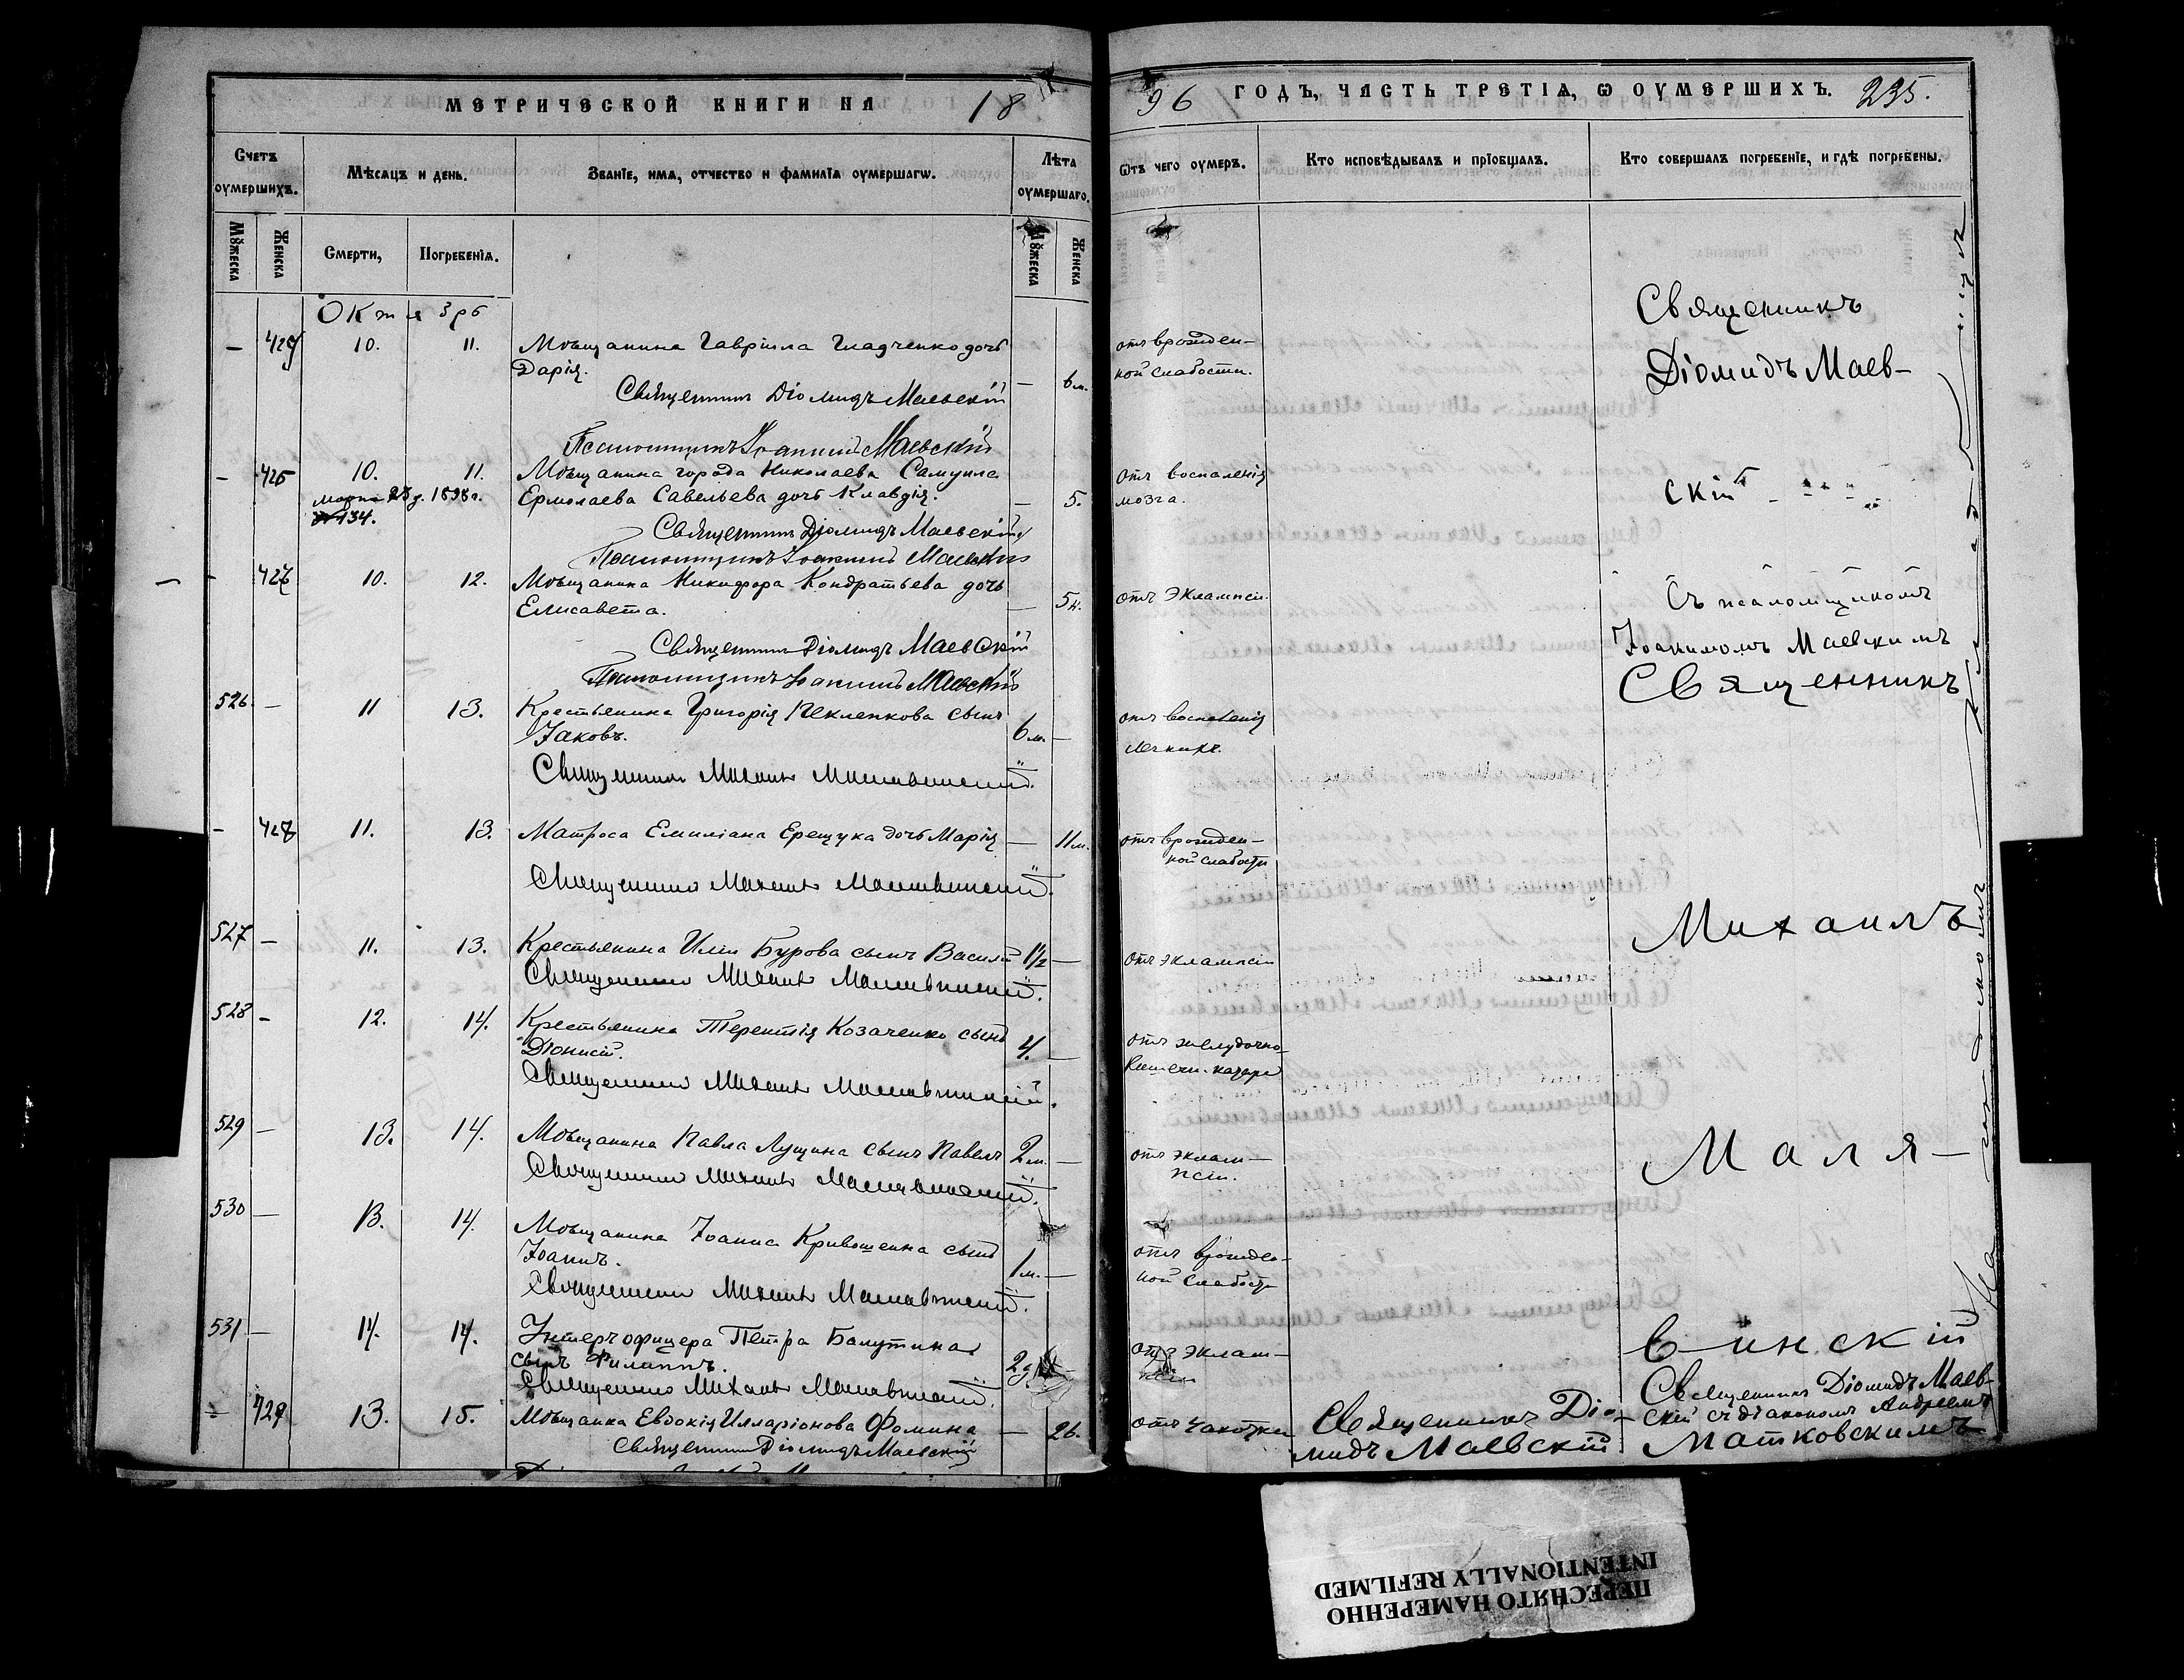 МЕТРИЧЕСКОЙ КНИГИ НА 18
96 ГОДЪ, ЧАСТЬ ТРЕТІѦ, Ѡ ОУМЕРШИХЪ. 235.
Счетъ оумершихъ.
Мѣсяцъ и день.
Званїе, имѧ, отчество и фамилїѧ оумершагѡ.
Лѣта оумершаго.
Ѿтъ чего оумеръ.
Кто исповѣдывалъ и прїобщалъ.
Кто совершалъ погребенїе, и гдѣ погребены.
Мꙋжеска
Женска
Смерти,
Погребенїѧ.
Мꙋжеска
Женска
Октября
— 425 10. 11. Мѣщанина Гавріила Гладченко дочь
Дарія. — 6 м.
отъ врожден-
ной слабости.
Священникъ Діомидъ Маевскій
Псаломщикъ Іоакимъ Маевскій
— 426 10. 11. Мѣщанина города Николаева Самуила
марта 28 д. 1898 г. Ермолаева Савельева дочь Клавдія. — 5.
№ 134.
отъ воспаленія
мозга.
Священникъ Діомидъ Маевскій
Псаломщикъ Іоакимъ Маевскій
— 427 10. 12. Мѣщанина Никифора Кондратьева дочь
Елисавета. — 5 н.
отъ эклампсіи.
Священникъ Діомидъ Маевскій
Псаломщикъ Іоакимъ Маевскій
526. — 11 13. Крестьянина Григорія Пекленкова сынъ
Іаковъ. 6 м. —
отъ воспаленія
легкихъ.
Священникъ Михаилъ Малявинскій.
— 428 11. 13. Матроса Емиліана Ерещука дочь Марія — 11 м.
отъ врожден-
ной слабости
Священникъ Михаилъ Малявинскій.
527 — 11. 13. Крестьянина Иліи Бурова сынъ Василій 1½ —
отъ эклампсіи
Священникъ Михаилъ Малявинскій.
528 — 12. 14. Крестьянина Терентія Козаченко сынъ
Діонисій. 4. —
отъ желудочно-
кишечн. катара
Священникъ Михаилъ Малявинскій.
529 — 13. 14. Мѣщанина Павла Лущина сынъ Павелъ 2 м. —
отъ эклам-
псіи.
Священникъ Михаилъ Малявинскій.
530 — 13. 14. Мѣщанина Іоанна Кривошеина сынъ
Іоаннъ. 1 м. —
отъ врожден-
ной слабости
Священникъ Михаилъ Малявинскій.
531 — 14. 14. Унтеръ офицера Петра
сынъ Филиппъ.
отъ эклам-
псіи
Священникъ Михаилъ Малявинскій.
— 429 13. 15. Мѣщанка Евдокія Илларіонова Фомина — 26.
отъ чахотки
Священникъ Діомидъ Маевскій
Священникъ Діо-
мидъ Маевскій
Священникъ
Діомидъ Маев-
скій
съ псаломщикомъ
Іоакимомъ Маевскимъ
Священникъ
Михаилъ
Маля-
винскій
Священникъ Діомидъ Маев-
скій съ діакономъ Андреемъ
Матковскимъ
ПЕРЕСНЯТО НАМЕРЕННО
INTENTIONALLY REFILMED